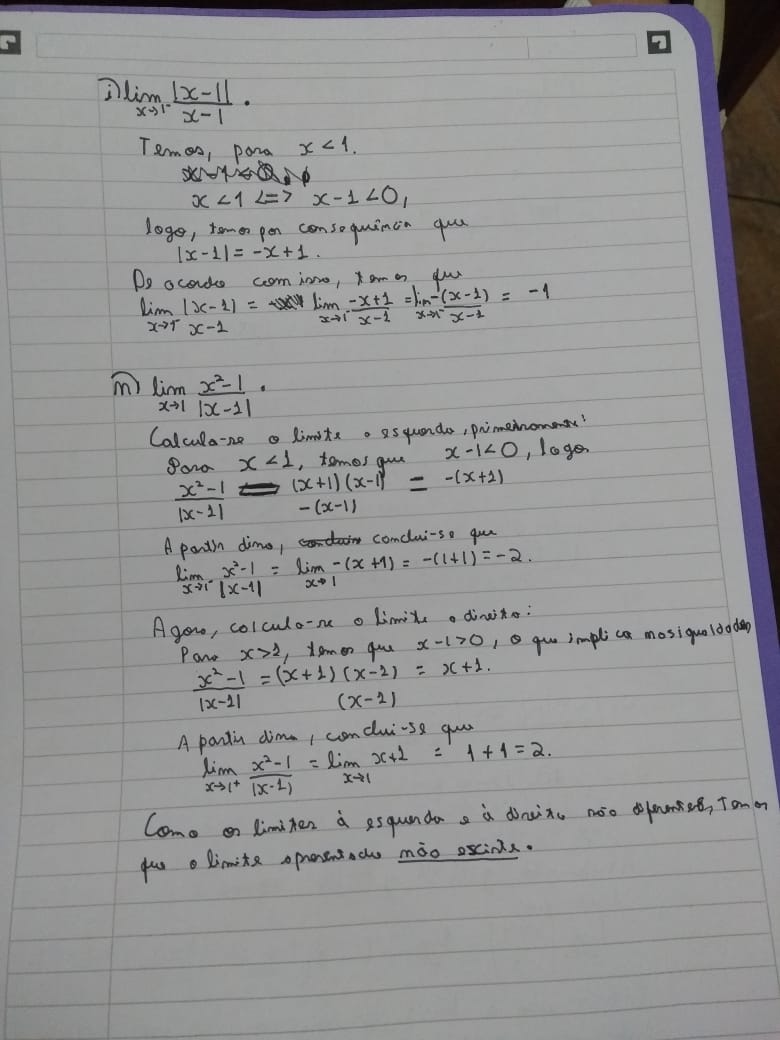 i) lim |x-1|/x-1 .
x→1⁻
Temos, para x < 1.
x < 1 <=> x-1 < 0,
logo, temos por consequência que
|x-1| = -x+1.
De acordo com isso, temos que
lim |x-1|/x-1 = lim -x+1/x-1 = lim -(x-1)/x-1 = -1
x→1⁻ x→1⁻ x→1⁻
n) lim x²-1/|x-1| .
x→1
Calcula-se o limite a esquerda, primeiramente:
Para x < 1, temos que x-1 < 0, logo
x²-1/|x-1| = (x+1)(x-1)/-(x-1) = -(x+1)
A partir disso, conclui-se que
lim x²-1/|x-1| = lim -(x+1) = -(1+1) = -2.
x→1⁻ x→1
Agora, calcula-se o limite a direita:
Para x>1, temos que x-1>0, o que implica nas igualdades
x²-1/|x-1| = (x+1)(x-1)/(x-1) = x+1.
A partir disso, conclui-se que
lim x²-1/|x-1| = lim x+1 = 1+1=2.
x→1⁺ x→1
Como os limites à esquerda e à direita são diferentes, temos
que o limite apresentado não existe.